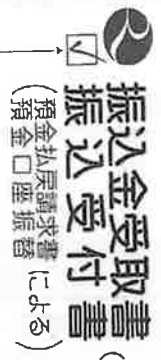 振込金受取書
振込受付書
(預金払戻請求書
預金口座振替 による)